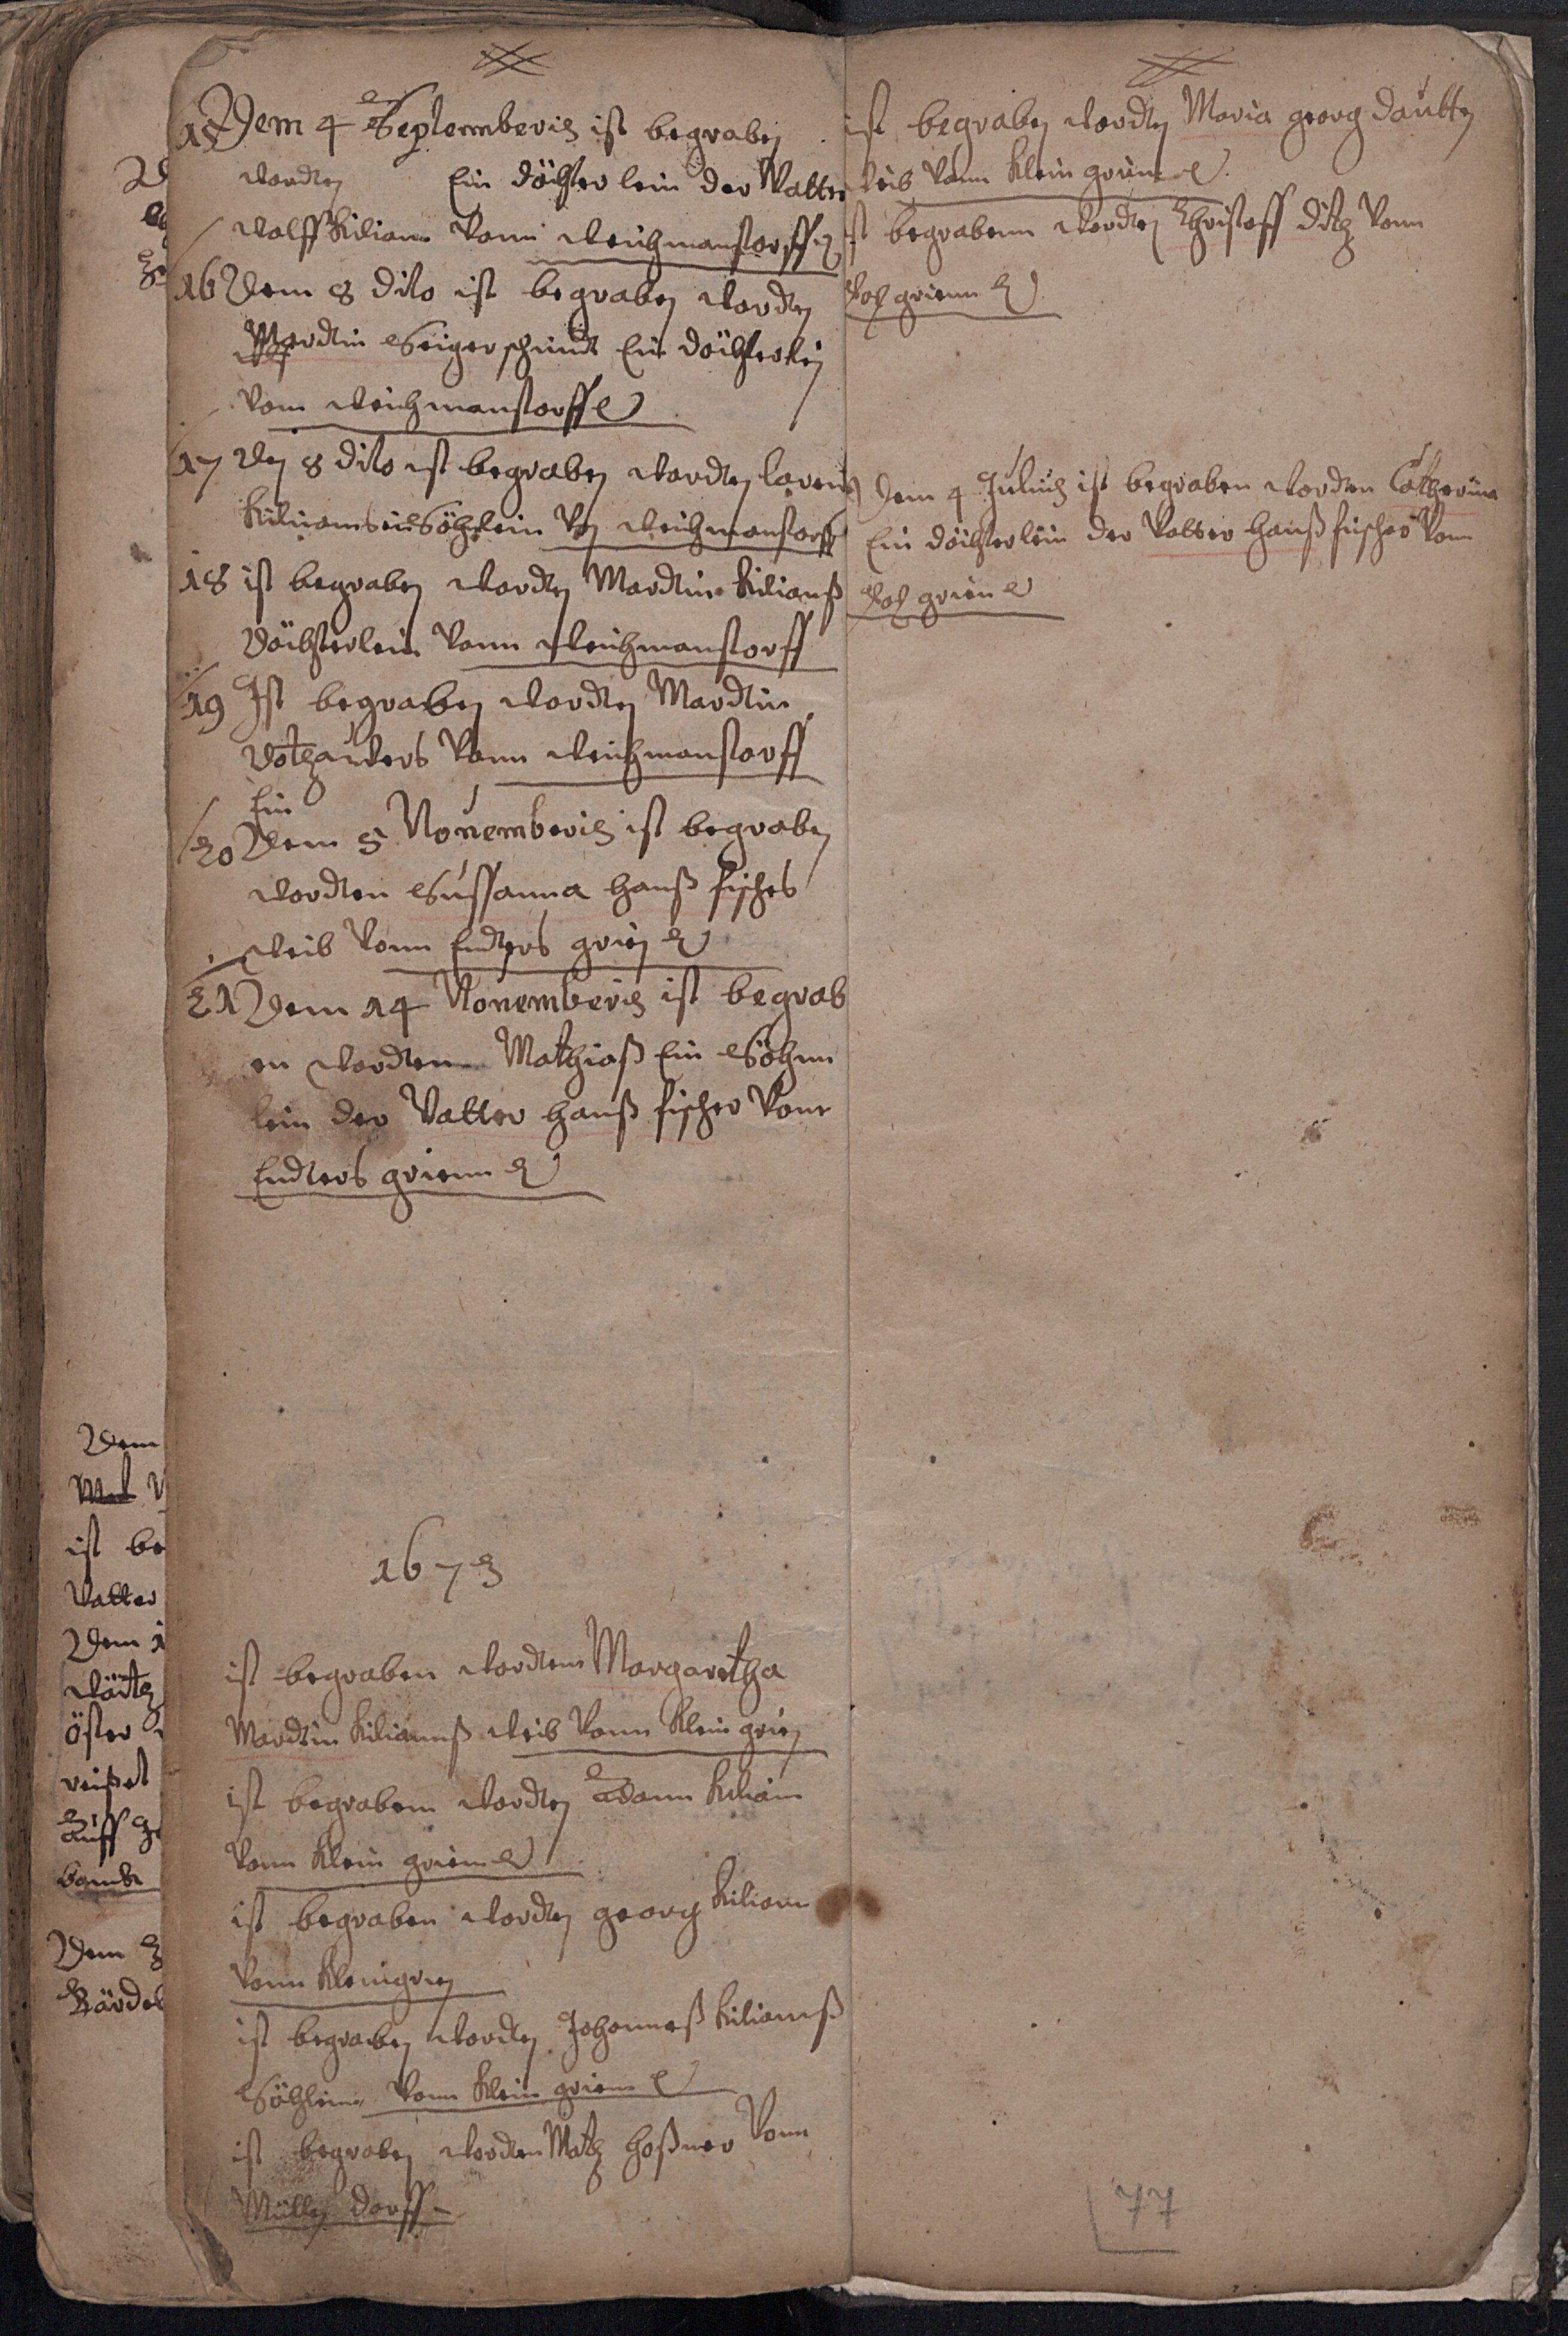 15 Dem 4 Septemberis ist begraben
wordten Ein döchterlein der Vatter
Wolff Kilian Vonn Weichmanstorff
16 Dem 8 dito ist begraben wordten
Mardtin Geigerschmidt Ein döchterlein
Vom Weichmanstorff
17 Den 8 dito ist begraben wordten
Kilians Söhnlein Von Weichmanstorff
18 ist begraben wordten Mardtin Kilianß
Döchterlein Vonn Weichmanstorff
19 Ist begraben wordten Mardtin
Vonn Weichmanstorff
Ein
20 Dem 5 Novemberis ist begraben
wordten Sussanna Hanß fischers
Weib Vonn Endters grien
21 Dem 14 Novemberis ist begrab
en wordtenn Mathiaß Ein Söhnn
lein der Vatter Hanß fischer Vonn
Endters grienn
1673
ist begraben wordtenn Margaretha
Mardtin Kilianß Weib Vonn Klein grien
ist begrabenn wordten Adam Kilian
Vonn Klein grienn
ist begraben wordten georg Kiliann
Vonn Kleingrien
ist begraben wordten Johanneß Kilianß
Söhlein Vonn Klein grienn
ist begraben wordten Matz Vonn
Müllen dorff
ist begraben wordten Maria georg dautten
Weib Vonn Klein grün
ist begrabenn wordten Christoff ditz Vonn
grienn
Dem 4 Julius ist begraben wordten Catherina
Ein döchterlein der Vatter Hanß fischer Vonn
grien
Dem
ist be
Vatter
Dem 1
Öster
Auff
Dem
77